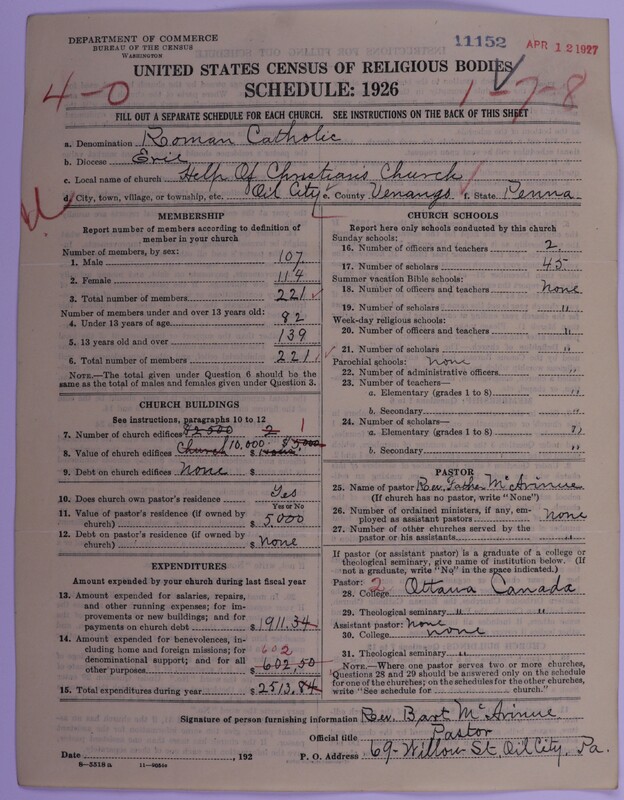 DEPARTMENT OF COMMERCE
BUREAU OF THE CENSUS
WASHINGTON
11152
APR 12 1927
UNITED STATES CENSUS OF RELIGIOUS BODIES
SCHEDULE: 1926
4-0
1-7-8
FILL OUT A SEPARATE SCHEDULE FOR EACH CHURCH. SEE INSTRUCTIONS ON THE BACK OF THIS SHEET
a. Denomination Roman Catholic
b. Diocese Erie
c. Local name of church Help Of Christians Church
d. City, town, village, or township, etc. Oil City e. County Venango f. State Penna
MEMBERSHIP
Report number of members according to definition of
member in your church
Number of members, by sex:
1. Male 107
2. Female 114
3. Total number of members 221
Number of members under and over 13 years old:
4. Under 13 years of age 82
5. 13 years old and over 139
6. Total number of members 221
NOTE.—The total given under Question 6 should be
same as the total of males and females given under Question 3.
CHURCH BUILDINGS
See instructions, paragraphs 10 to 12
7. Number of church edifices 2 1
8. Value of church edifices Church 10,000 $
9. Debt on church edifices None $
10. Does church own pastor's residence Yes
Yes or No
11. Value of pastor's residence (if owned by
church) $ 5,000
12. Debt on pastor's residence (if owned by
church) $ None
EXPENDITURES
Amount expended by your church during last fiscal year
13. Amount expended for salaries, repairs,
and other running expenses; for im-
provements or new buildings; and for
payments on church debt $ 1911.34
14. Amount expended for benevolences,
including home and foreign missions; for
denominational support; and for all
other purposes 602
$ 602.50
15. Total expenditures during year $ 2513.84
CHURCH SCHOOLS
Report here only schools conducted by this church
Sunday schools:
16. Number of officers and teachers 2
17. Number of scholars 45
Summer vacation Bible schools:
18. Number of officers and teachers None
19. Number of scholars "
Week-day religious schools:
20. Number of officers and teachers "
21. Number of scholars "
Parochial schools: None
22. Number of administrative officers "
23. Number of teachers—
a. Elementary (grades 1 to 8) "
b. Secondary "
24. Number of scholars—
a. Elementary (grades 1 to 8) "
b. Secondary "
PASTOR
25. Name of pastor Rev. Father McAvinue
(If church has no pastor, write "None")
26. Number of ordained ministers, if any, em-
ployed as assistant pastors None
27. Number of other churches served by the
pastor or his assistants "
If pastor (or assistant pastor) is a graduate of a college or
theological seminary, give name of institution below. (If
not a graduate, write "No" in the space indicated.)
Pastor: 2
28. College Ottawa Canada
29. Theological seminary " "
Assistant pastor: None
30. College none
31. Theological seminary "
NOTE.—Where one pastor serves two or more churches,
Questions 28 and 29 should be answered only on the schedule
for one of the churches; on the schedules for the other churches,
write "See schedule for church."
Signature of person furnishing information Rev. Bart McAvinue
Official title Pastor
Date , 192 P. O. Address 69-Willow St, Oil City, Pa.
8-5318 a